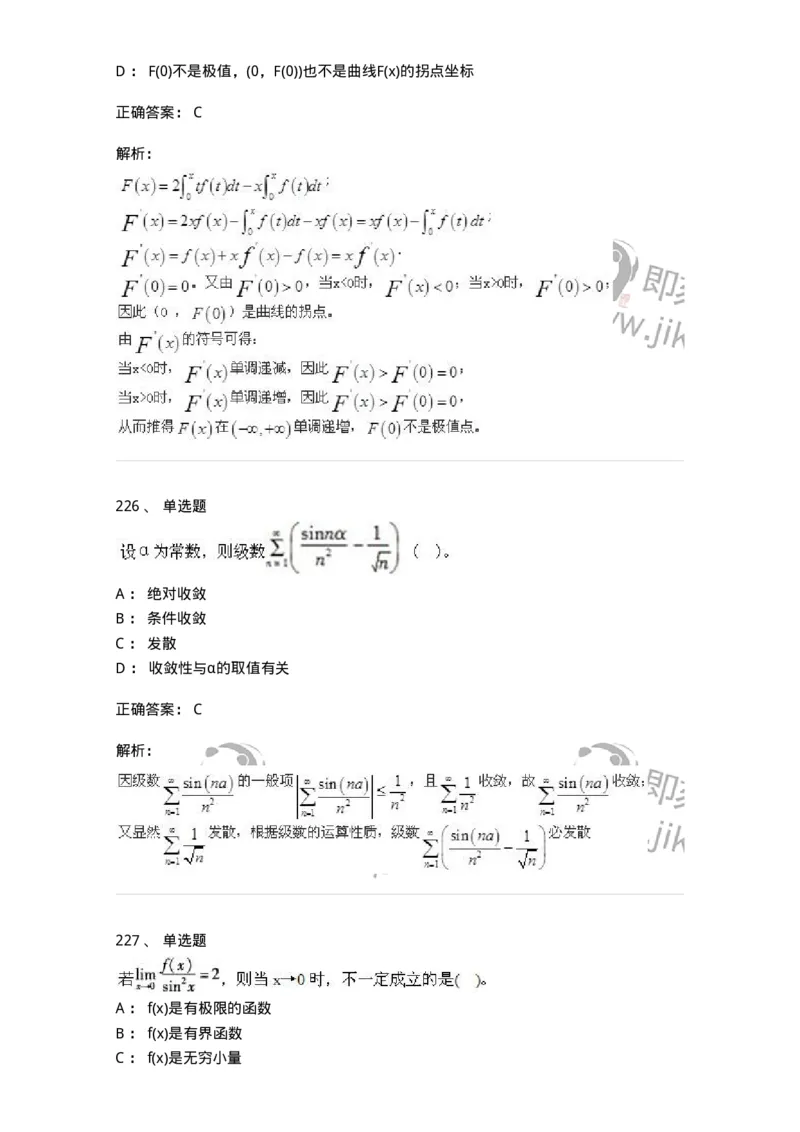 D： F(0)不是极值，(0，F(0))也不是曲线F(x)的拐点坐标
正确答案： C
解析：
F(x)=2∫₀ˣtf(t)dt−x∫₀ˣf(t)dt；
F'(x)=2xf(x)−∫₀ˣf(t)dt−xf(x)=xf(x)−∫₀ˣf(t)dt；
F"(x)=f(x)+xf'(x)−f(x)=xf'(x)．
F"(0)=0。又由F"(0)>0，当x<0时，F"(x)<0；当x>0时，F"(0)>0；
因此（0，F(0)）是曲线的拐点。
由F"(x)的符号可得：
当x<0时，F'(x)单调递减，因此F'(x)>F'(0)=0；
当x>0时，F'(x)单调递增，因此F'(x)>F'(0)=0，
从而推得F(x)在(−∞,+∞)单调递增，F(0)不是极值点。
226、 单选题
设α为常数，则级数∑ₙ₌₁^∞(sinnα/n²−1/√n)（ ）。
A： 绝对收敛
B： 条件收敛
C： 发散
D： 收敛性与α的取值有关
正确答案： C
解析：
因级数∑ₙ₌₁^∞ sin(na)/n²的一般项|∑ₙ₌₁^∞ sin(na)/n²|≤1/n²，且∑ₙ₌₁^∞ 1/n²收敛，故∑ₙ₌₁^∞ sin(na)/n²收敛；
又显然∑ₙ₌₁^∞ 1/√n发散，根据级数的运算性质，级数∑ₙ₌₁^∞(sin(na)/n²−1/√n)必发散
227、 单选题
若lim x→0 f(x)/sin²x=2，则当x→0时，不一定成立的是( )。
A： f(x)是有极限的函数
B： f(x)是有界函数
C： f(x)是无穷小量